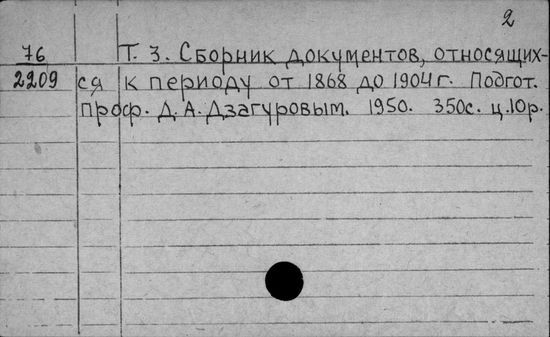 2
76 Т. 3. Сборник документов, относящих-
2209 ся к периоду от 1868 до 1904 г. Подгот.
проф. Д. А. Дзагуровым. 1950. 350с. ц.10р.